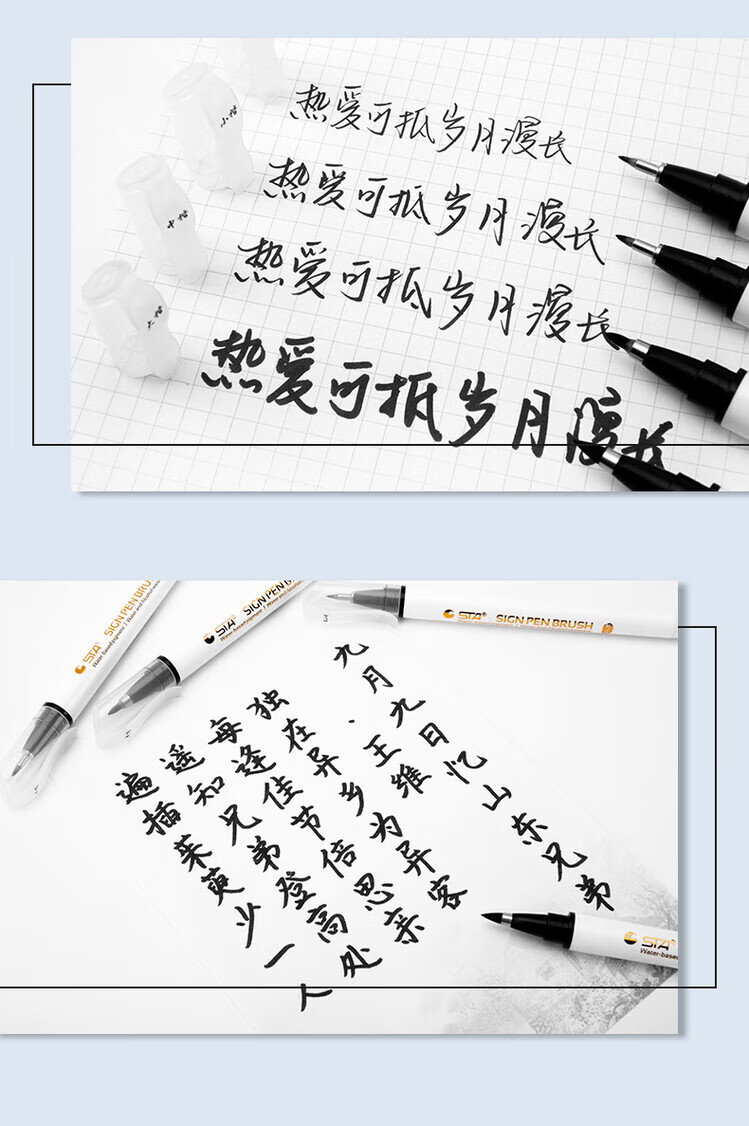 热爱可抵岁月漫长
热爱可抵岁月漫长
热爱可抵岁月漫长
热爱可抵岁月漫长
小楷
中楷
大楷
STA® SIGN PEN BRU
Water based pigment | Water and Alcohol
STA® SIGN PEN BR
Water based pigment | Water and
STA® SIGN PEN BRUSH
九月九日忆山东兄弟
·王维
独在异乡为异客
每逢佳节倍思亲
遥知兄弟登高处
遍插茱萸少一人
STA®
Water-based